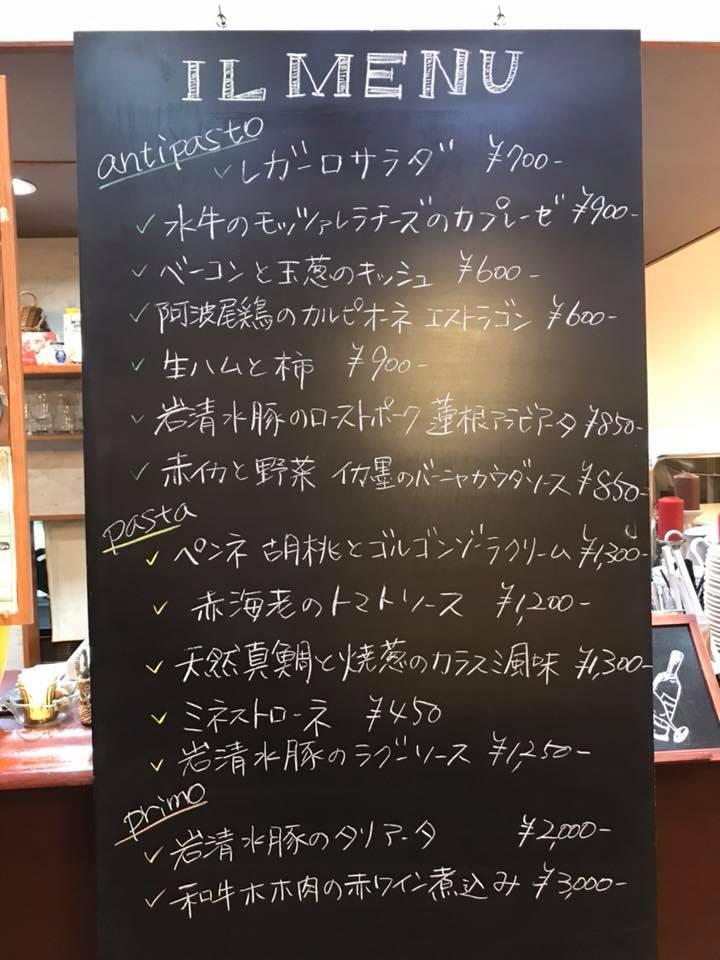 IL MENU
antipasto
レガーロサラダ ¥700-
水牛のモッツァレラチーズのカプレーゼ ¥900-
ベーコンと玉葱のキッシュ ¥600-
阿波尾鶏のカルピオーネ エストラゴン ¥600-
生ハムと柿 ¥900-
岩清水豚のローストポーク 蓮根アラビアータ ¥850-
赤イカと野菜 イカ墨のバーニャカウダソース ¥850-
pasta
ペンネ 胡桃とゴルゴンゾーラクリーム ¥1,300-
赤海老のトマトソース ¥1,200-
天然真鯛と焼葱のカラスミ風味 ¥1,300-
ミネストローネ ¥450
岩清水豚のラグーソース ¥1,250-
primo
岩清水豚のタリアータ ¥2,000-
和牛ホホ肉の赤ワイン煮込み ¥3,000-